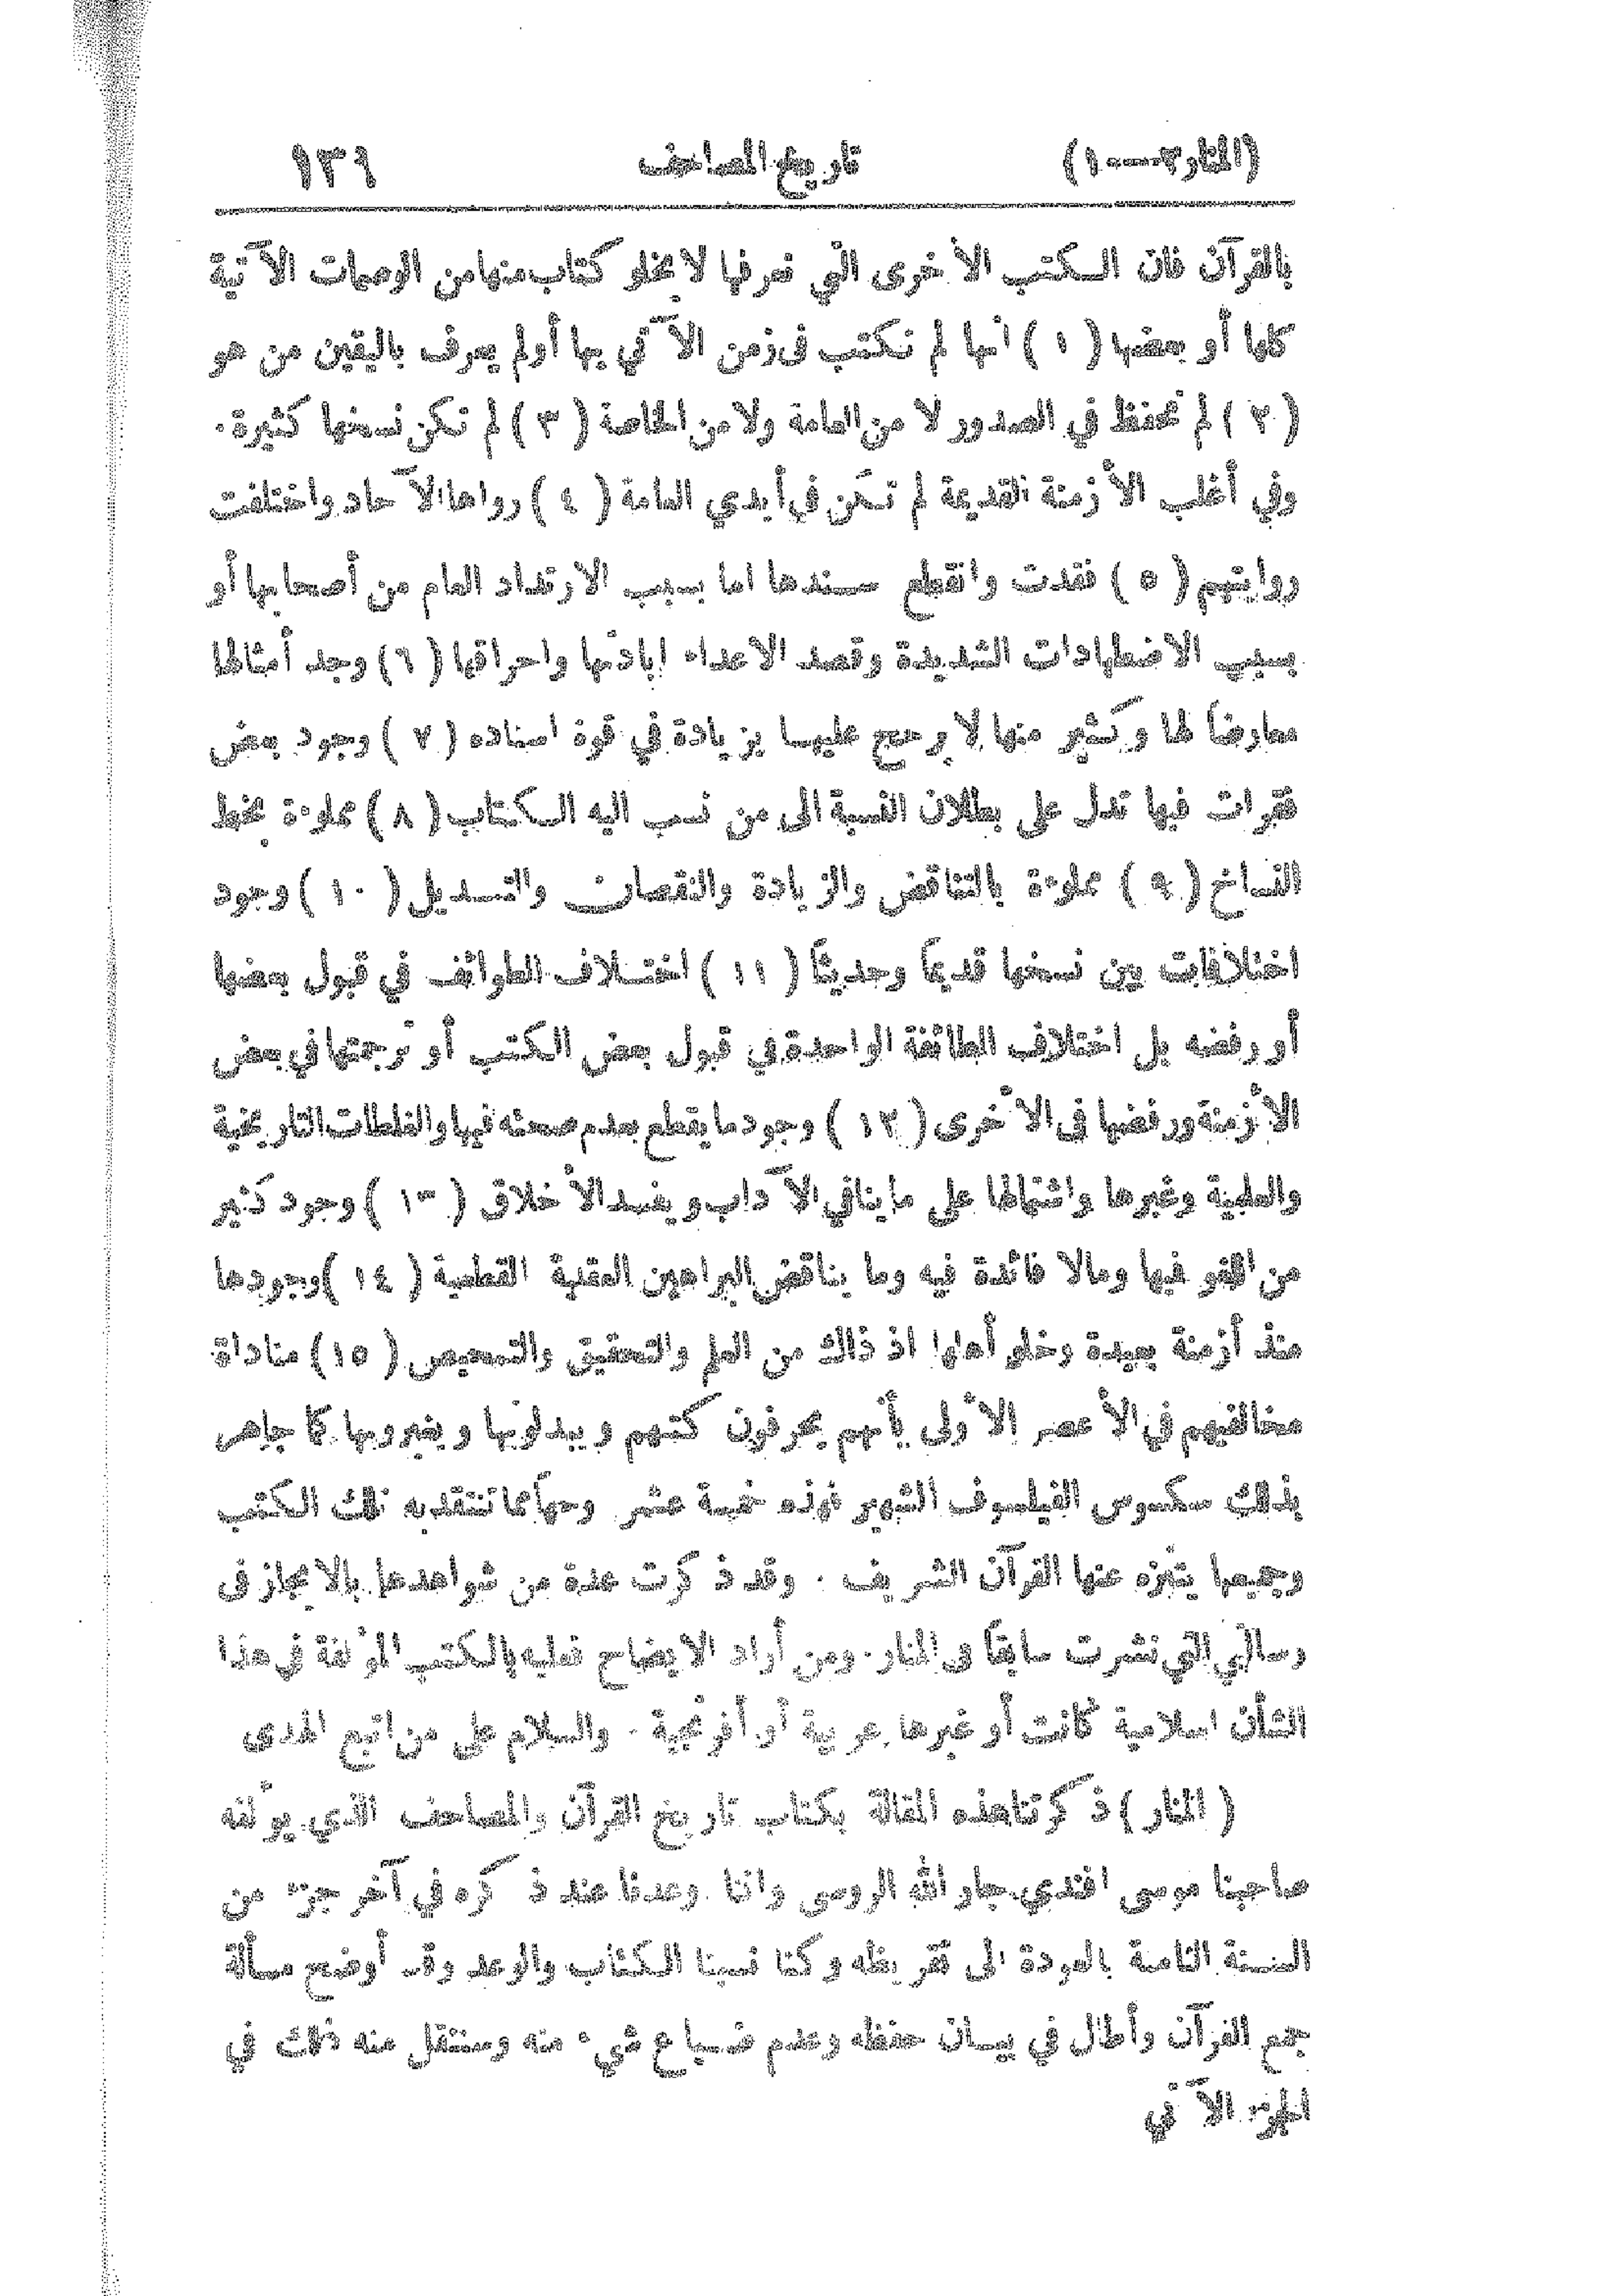 (المنار ٣ — ١٠) تاريخ المصاحف ١٣٩
بالقرآن فان الكتب الأخرى التي نعرفها لا يخلو كتاب منها من الوصمات الآتية
كلها أو بعضها ( ١ ) انها لم تكتب في زمن الآتي بها أو لم يعرف باليقين من هو
( ٢ ) لم تحفظ في الصدور لا من العامة ولا من الخاصة ( ٣ ) لم تكن نسخها كثيرة .
وفي أغلب الأزمنة القديمة لم تكن في أيدي العامة ( ٤ ) رواها الآحاد واختلفت
روايتهم ( ٥ ) فقدت وانقطع سندها اما بسبب الارتداد العام من أصحابها أو
بسبب الاضطهادات الشديدة وقصد الاعداء ابادتها واحراقها ( ٦ ) وجد أمثالها
معارضاً لها وكثير منها لا يرجح عليها بزيادة في قوة اسناده ( ٧ ) وجود بعض
فقرات فيها تدل على بطلان النسبة الى من نسب اليه الكتاب ( ٨ ) مملوءة بخط
النساخ ( ٩ ) مملوءة بالتناقض والزيادة والنقصان والتبديل ( ١٠ ) وجود
اختلافات بين نسخها قديماً وحديثاً ( ١١ ) اختلاف الطوائف في قبول بعضها
أو رفضه بل اختلاف الطائفة الواحدة في قبول بعض الكتب أو ترجمتها في بعض
الأزمنة ورفضها في الأخرى ( ١٢ ) وجود ما يقطع بعدم صحته فيها والغلطات التاريخية
والعلمية وغيرها واشتمالها على ما ينافي الآداب ويفسد الأخلاق ( ١٣ ) وجود كثير
من اللغو فيها ومالا فائدة فيه وما يناقض البراهين العقلية القطعية ( ١٤ ) وجودها
منذ أزمنة بعيدة وخلو أهلها اذ ذاك من العلم والتحقيق والتمحيص ( ١٥ ) مناداة
مخالفيهم في الأعصر الأولى بأنهم يحرفون كتبهم ويبدلونها ويغيرونها كما جاهر
بذلك سلسوس الفيلسوف الشهير فهذه خمسة عشر وجهاً مما تنتقد به تلك الكتب
وجميعها يتنزه عنها القرآن الشريف . وقد ذكرت عدة من شواهدها بالايجاز في
رسالتي التي نشرت سابقاً في المنار . ومن أراد الايضاح فعليه بالكتب المؤلفة في هذا
الشأن اسلامية كانت أو غيرها عربية أو أفرنجية . والسلام على من اتبع الهدى
( المنار ) ذكرتنا هذه المقالة بكتاب تاريخ القرآن والمصاحف الذي يؤلفه
صاحبنا موسى افندي جار الله الروسي واننا وعدنا عند ذكره في آخر جزء من
السنة الثامنة بالعودة الى تقريظه وكنا نسينا الكتاب والوعد وقد أوضح مسألة
جمع القرآن وأطال في بيان حفظه وعدم ضياع شيء منه وسننقل منه ذلك في
الجزء الآتي